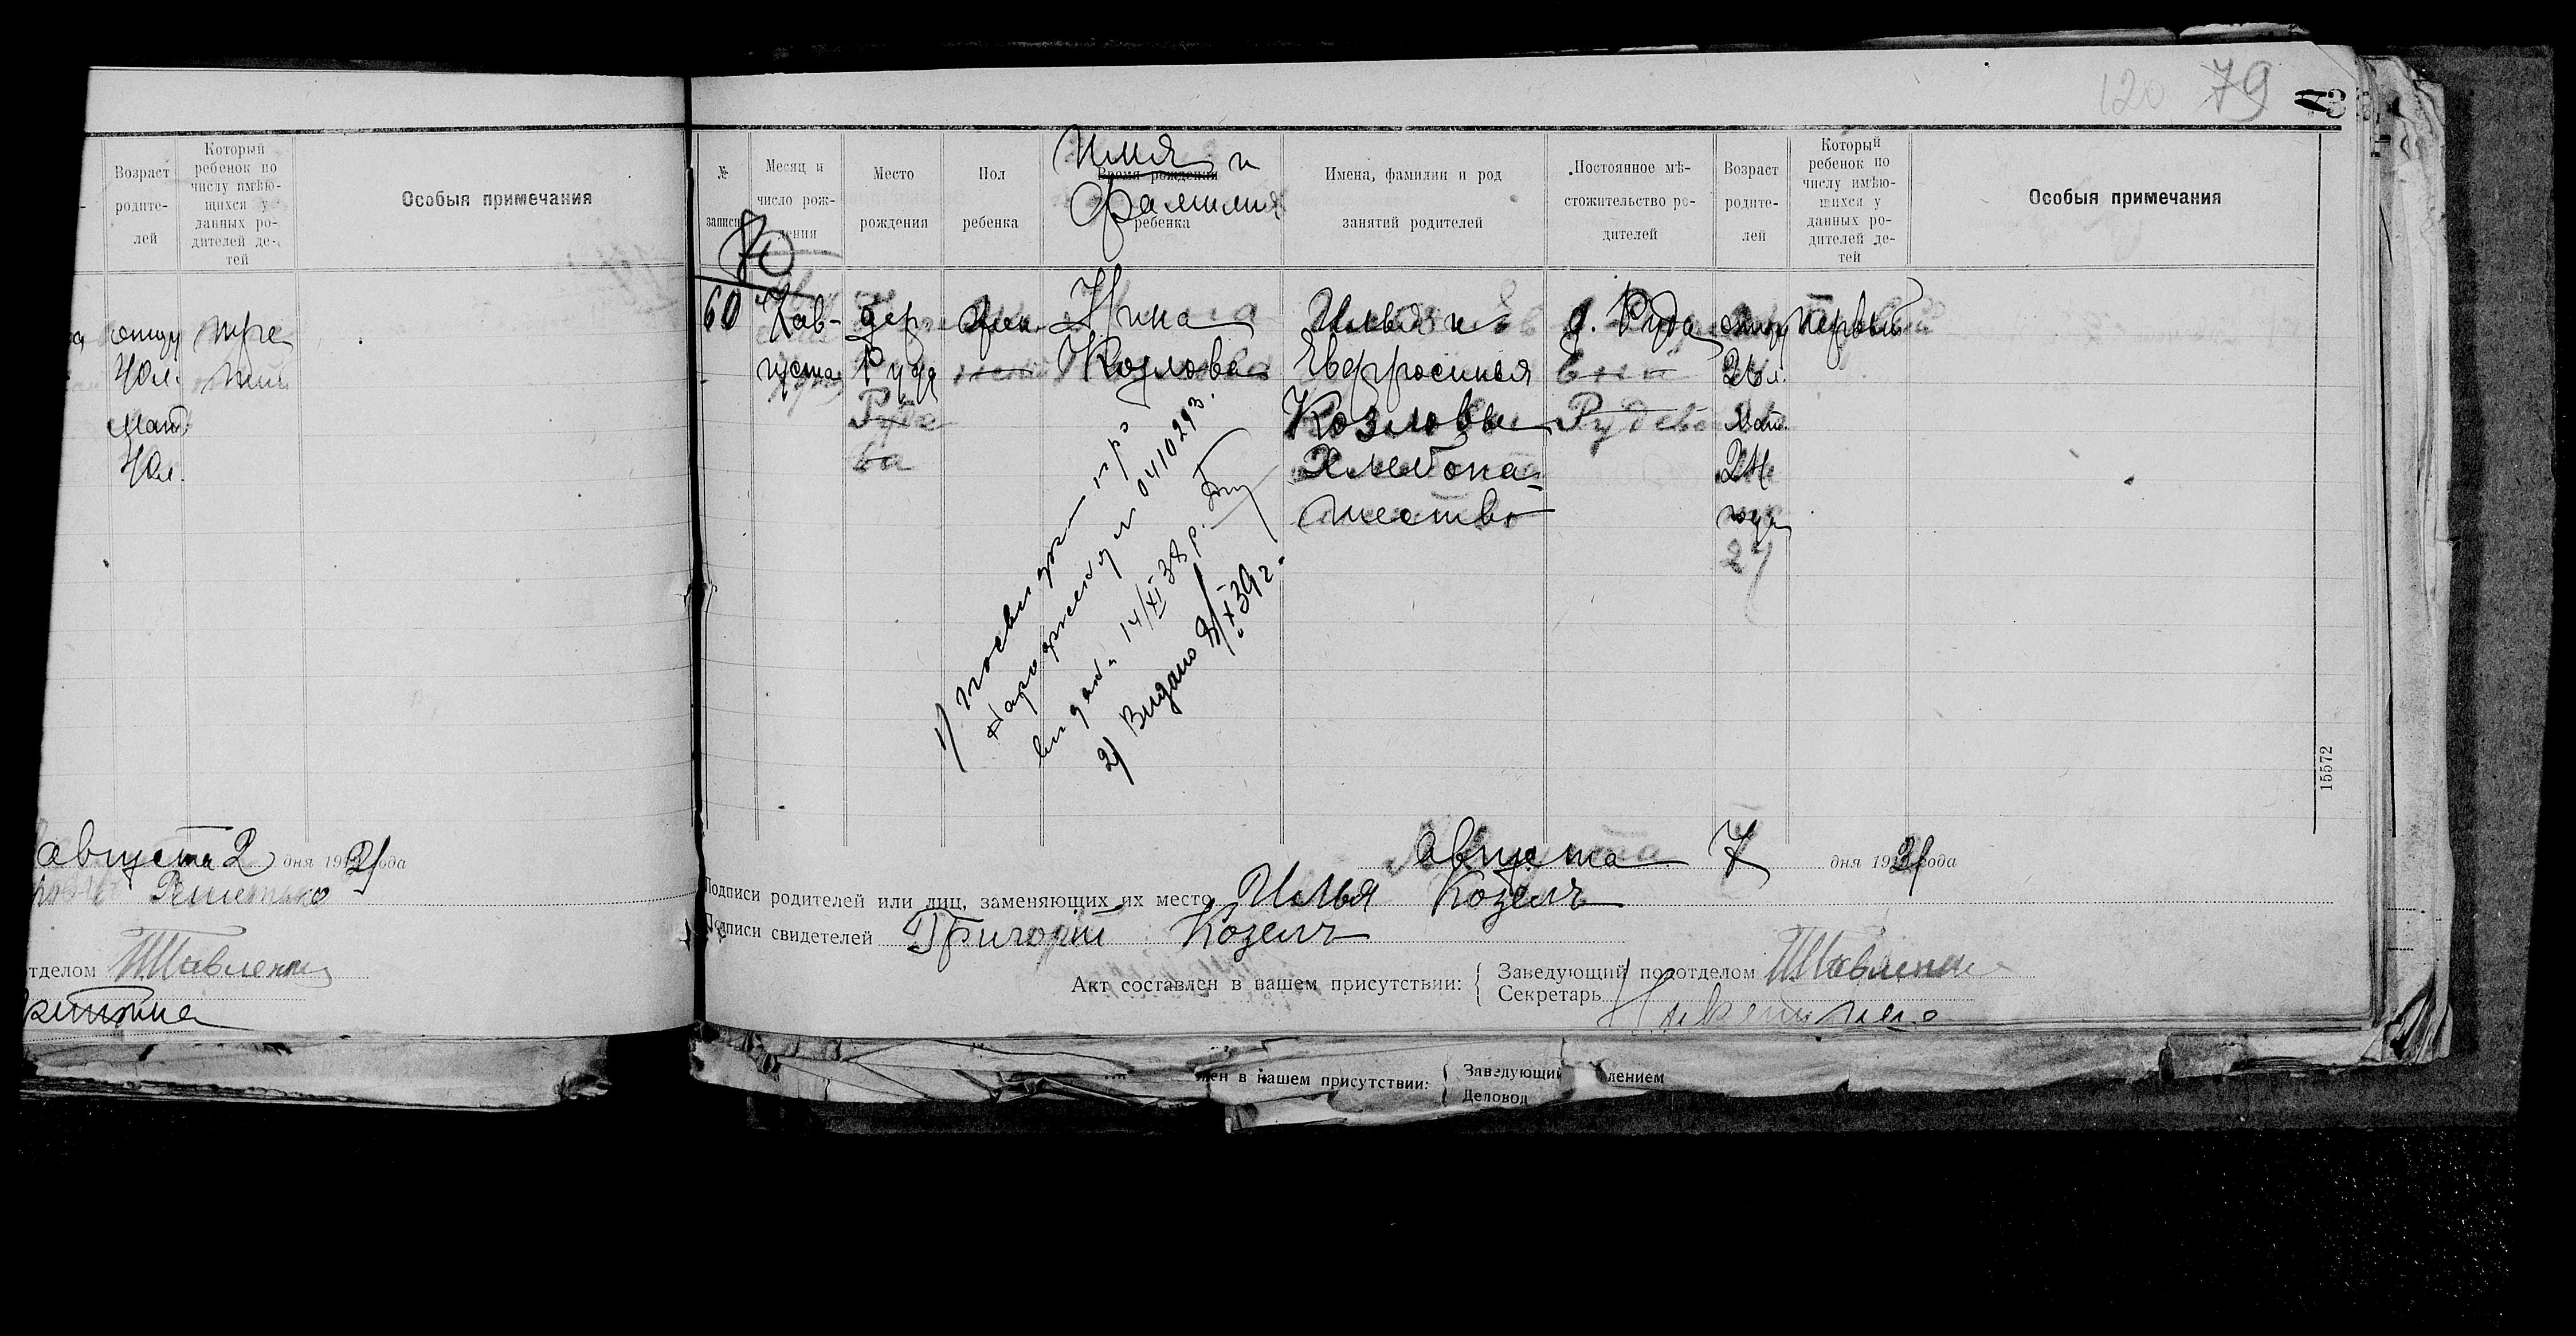 Возраст
родите-
лей
Который
ребенок по
числу имѣю-
щихся у
данных ро-
дителей де-
тей
Особыя примечания
отцу
40 л.
Мат.
40 л.
тре
тий
августа 2 дня 1921 года
Решетько
отделом
120 79
№
записи
Месяц и
число рож-
дения
Место
рождения
Пол
ребенка
Имя и
Время рождения
Фамилия
ребенка
Имена, фамилии и род
занятий родителей
Постоянное мѣ-
стожительство ро-
дителей
Возраст
родите-
лей
Который
ребенок по
числу имѣю-
щихся у
данных ро-
дителей де-
тей
Особыя примечания
60
7 ав-
густа
дер.
Руда
жен.
Нина
Козлова
Илья и
Евфросиния
Козловы
Хлебопа-
шество
д. Руда
отцу
26 л.
Мат.
24
года
первый
1/ посвидку про
народження № 0410293.
видано 14/XI 38 р.
2/ Видано 9/X 39 г.
15572
августа 7 дня 1921 года
Подписи родителей или лиц, заменяющих их место Илья Козелъ
Подписи свидетелей Григорій Козелъ
Акт составлен в нашем присутствии:
Заведующий подотделом
Секретарь
в нашем присутствии:
Заведующий
лением
Деловод